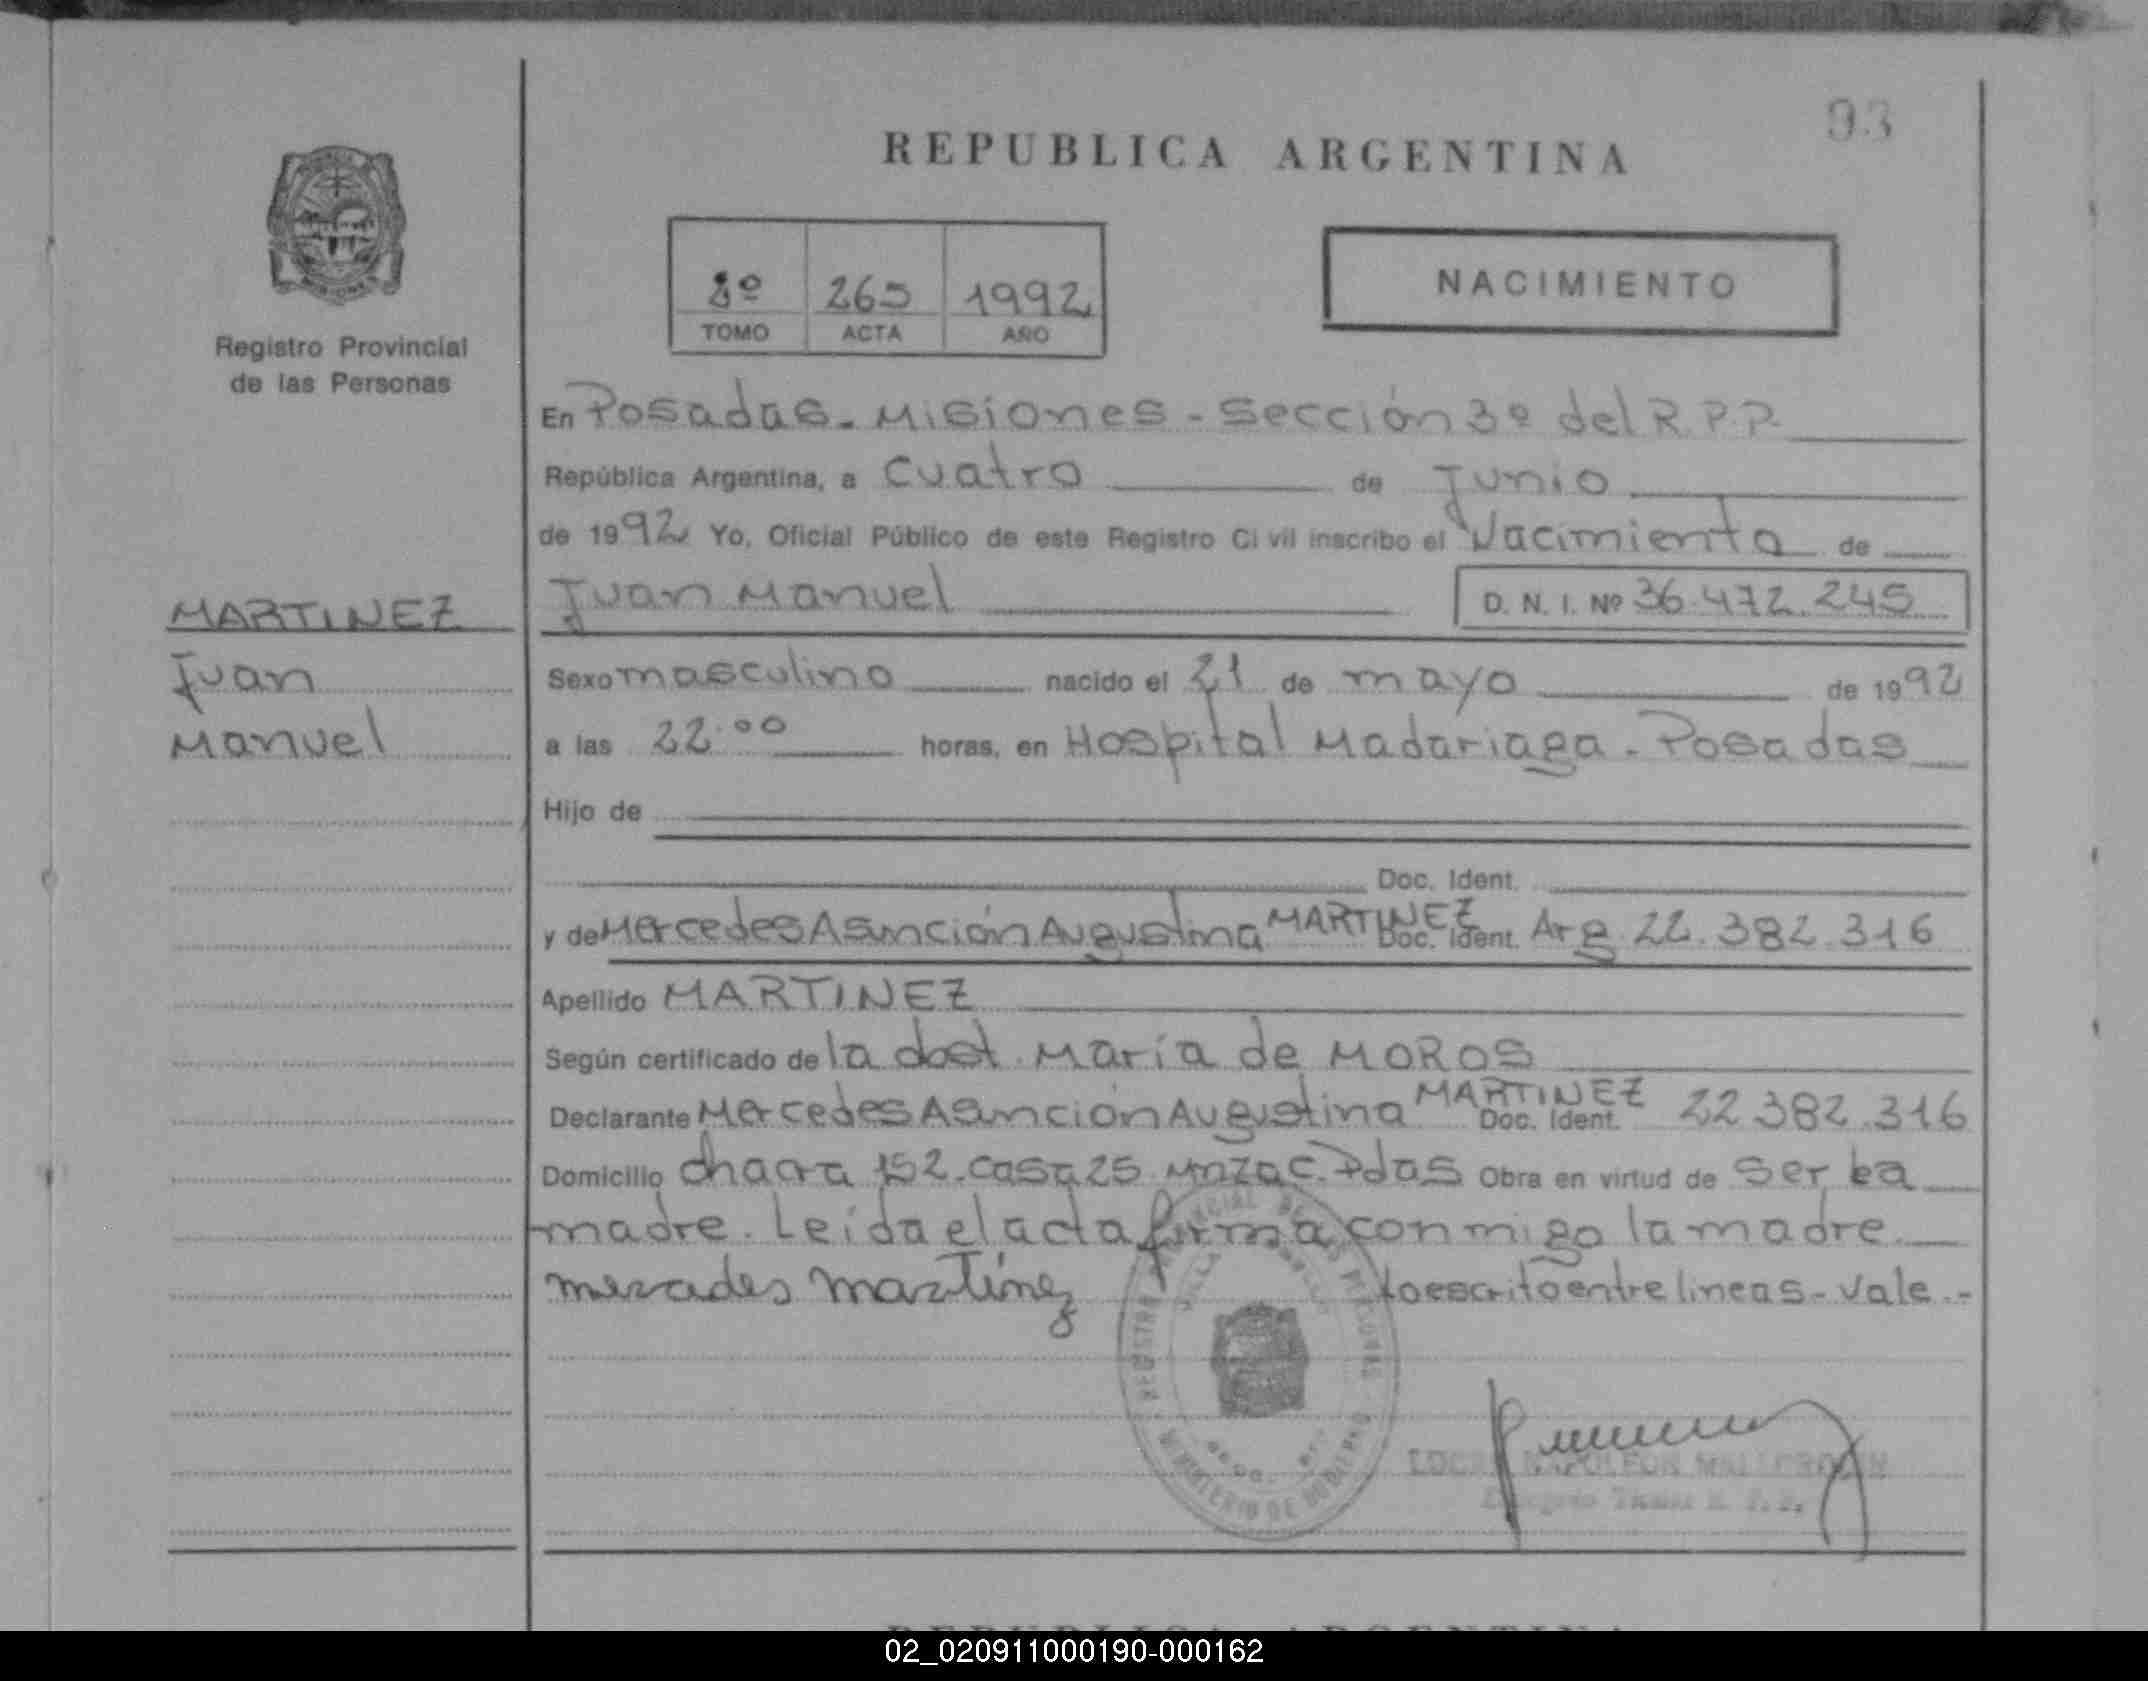 93
REPUBLICA ARGENTINA
8º 265 1992
TOMO ACTA AÑO
NACIMIENTO
Registro Provincial
de las Personas
En Posadas - Misiones - Sección 3º del R.P.P.
República Argentina, a Cuatro de Junio
de 1992 Yo, Oficial Público de este Registro Civil inscribo el Nacimiento de
MARTINEZ
Juan Manuel D. N. I. Nº 36.472.245
Juan
Sexo masculino nacido el 21 de mayo de 1992
Manuel
a las 22.00 horas, en Hospital Madariaga - Posadas
Hijo de
Doc. Ident.
y de Mercedes Asunción Augustina MARTINEZ Doc. Ident. Arg 22.382.316
Apellido MARTINEZ
Según certificado de la dost. María de MOROS
Declarante Mercedes Asunción Augustina MARTINEZ Doc. Ident. 22 382.316
Domicilio chacra 152. casa 25 Mnza C. Pdas Obra en virtud de ser La
madre. Leída el acta firma conmigo la madre.
mercades martinez lo escrito entre lineas - vale.-
MINISTERIO DE GOBIERNO
NAPOLEON
02_020911000190-000162